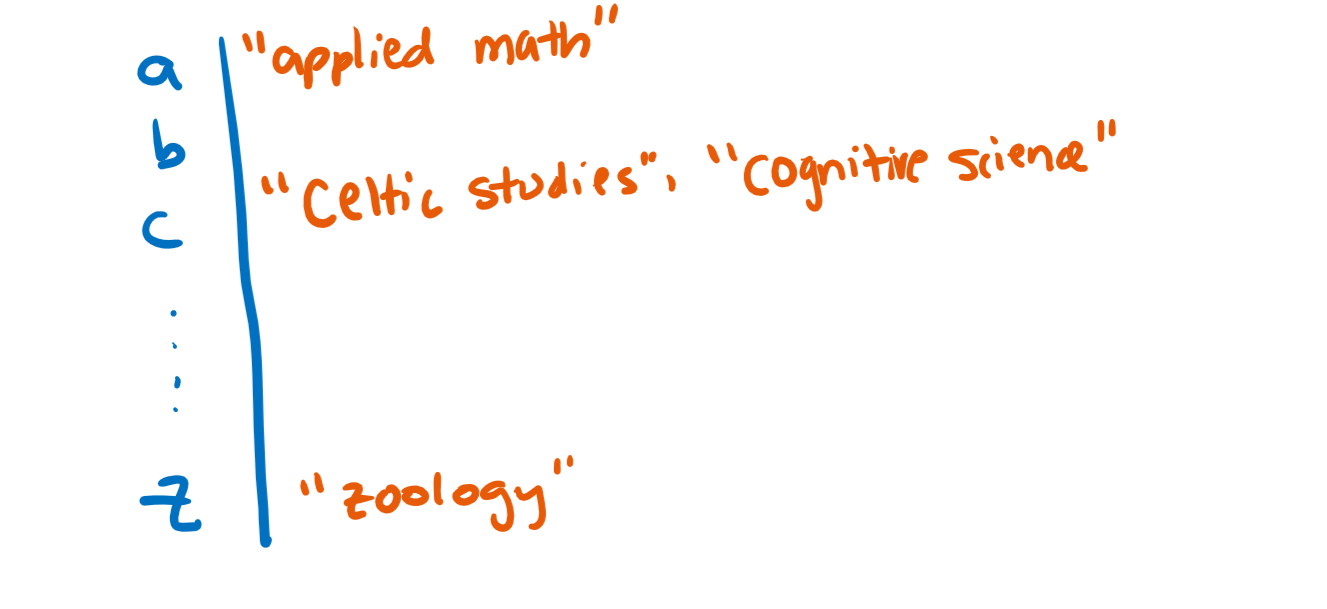 a "applied math"
b
"Celtic studies", "cognitive science"
c
z "zoology"